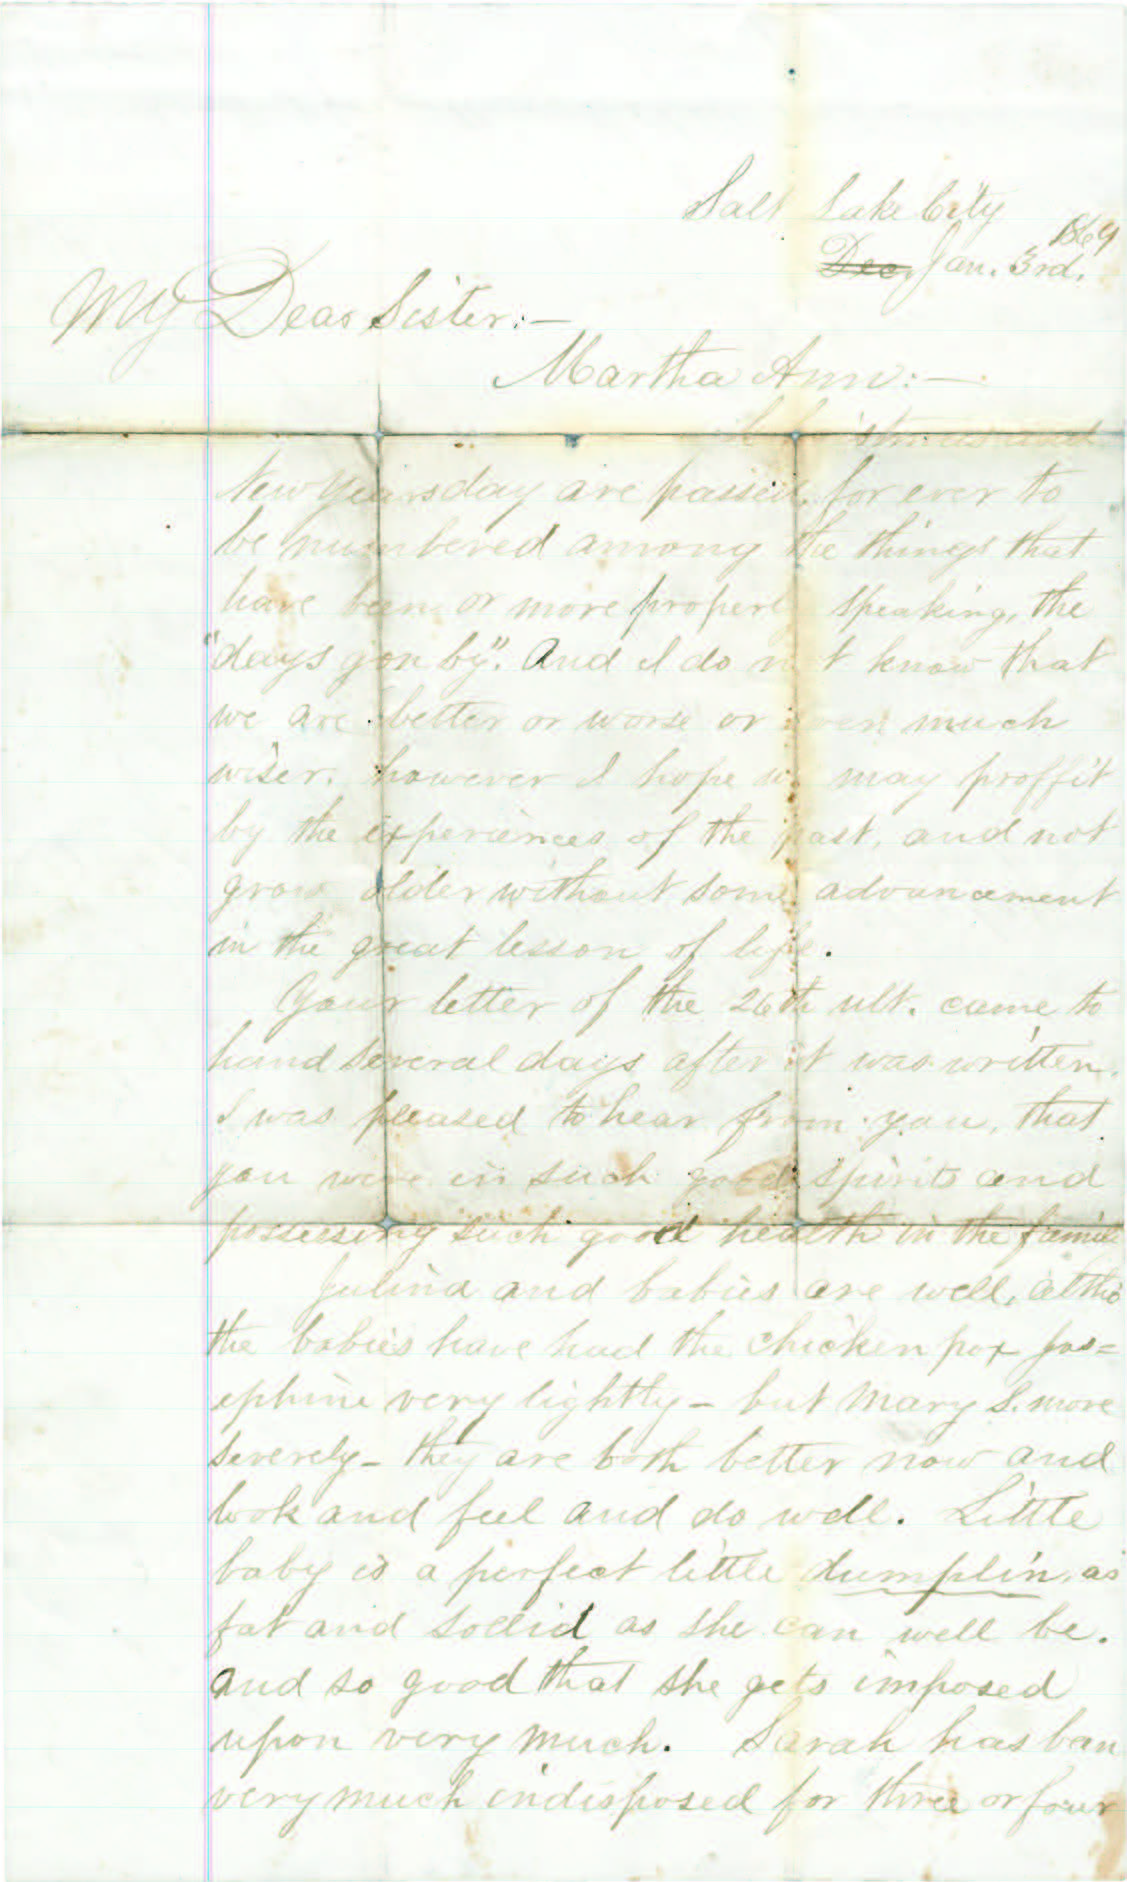 Salt Lake City
1869
Dec Jan. 3rd.
My Dear Sister:—
Martha Ann:—
and
New Years day are passed, for ever to
be numbered among the things that
have been, or more properly speaking, the
"days gon by". And I do not know that
we are better or worse or even much
wiser. however I hope we may proffit
by the experiences of the past, and not
grow older without some advancement
in the great lesson of life.
Your letter of the 26th ult. came to
hand several days after it was written.
I was pleased to hear from you, that
you were in such good spirits and
possessing such good health in the famil
Julina and babies are well, altho
the babies have had the chicken pox Jos=
ephine very lightly – but Mary S. more
severely – they are both better now and
look and feel and do well. Little
baby is a perfect little dumplin, as
fat and sollid as she can well be.
and so good that she gets imposed
upon very much. Sarah has ban
very much indisposed for three or four